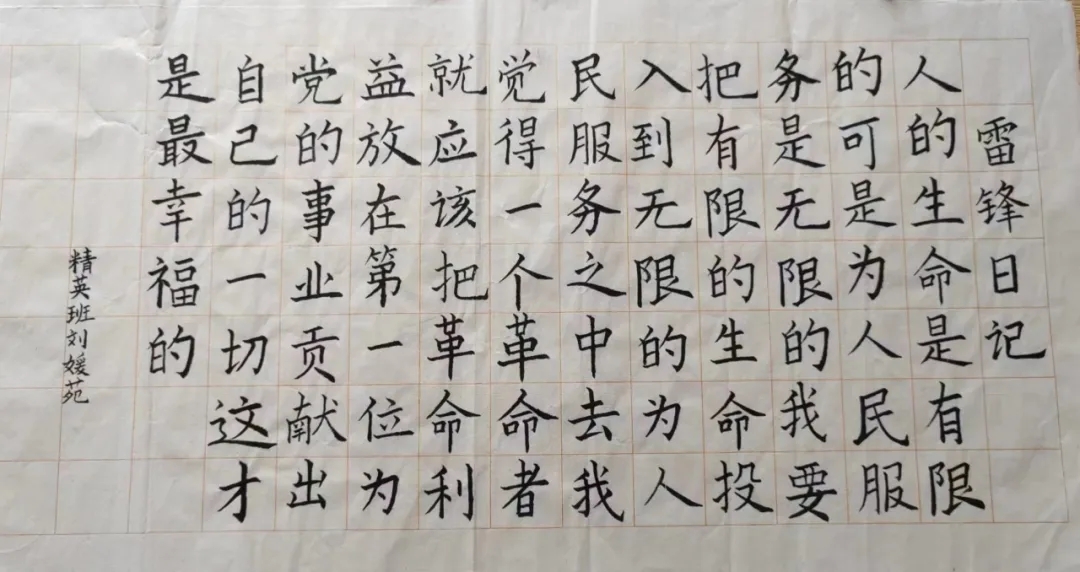 雷锋日记
人的生命是有限
的可是为人民服
务是无限的我要
把有限的生命投
入到无限的为人
民服务之中去我
觉得一个革命者
就应该把革命利
益放在第一位为
党的事业贡献出
自己的一切这才
是最幸福的
精英班刘媛苑